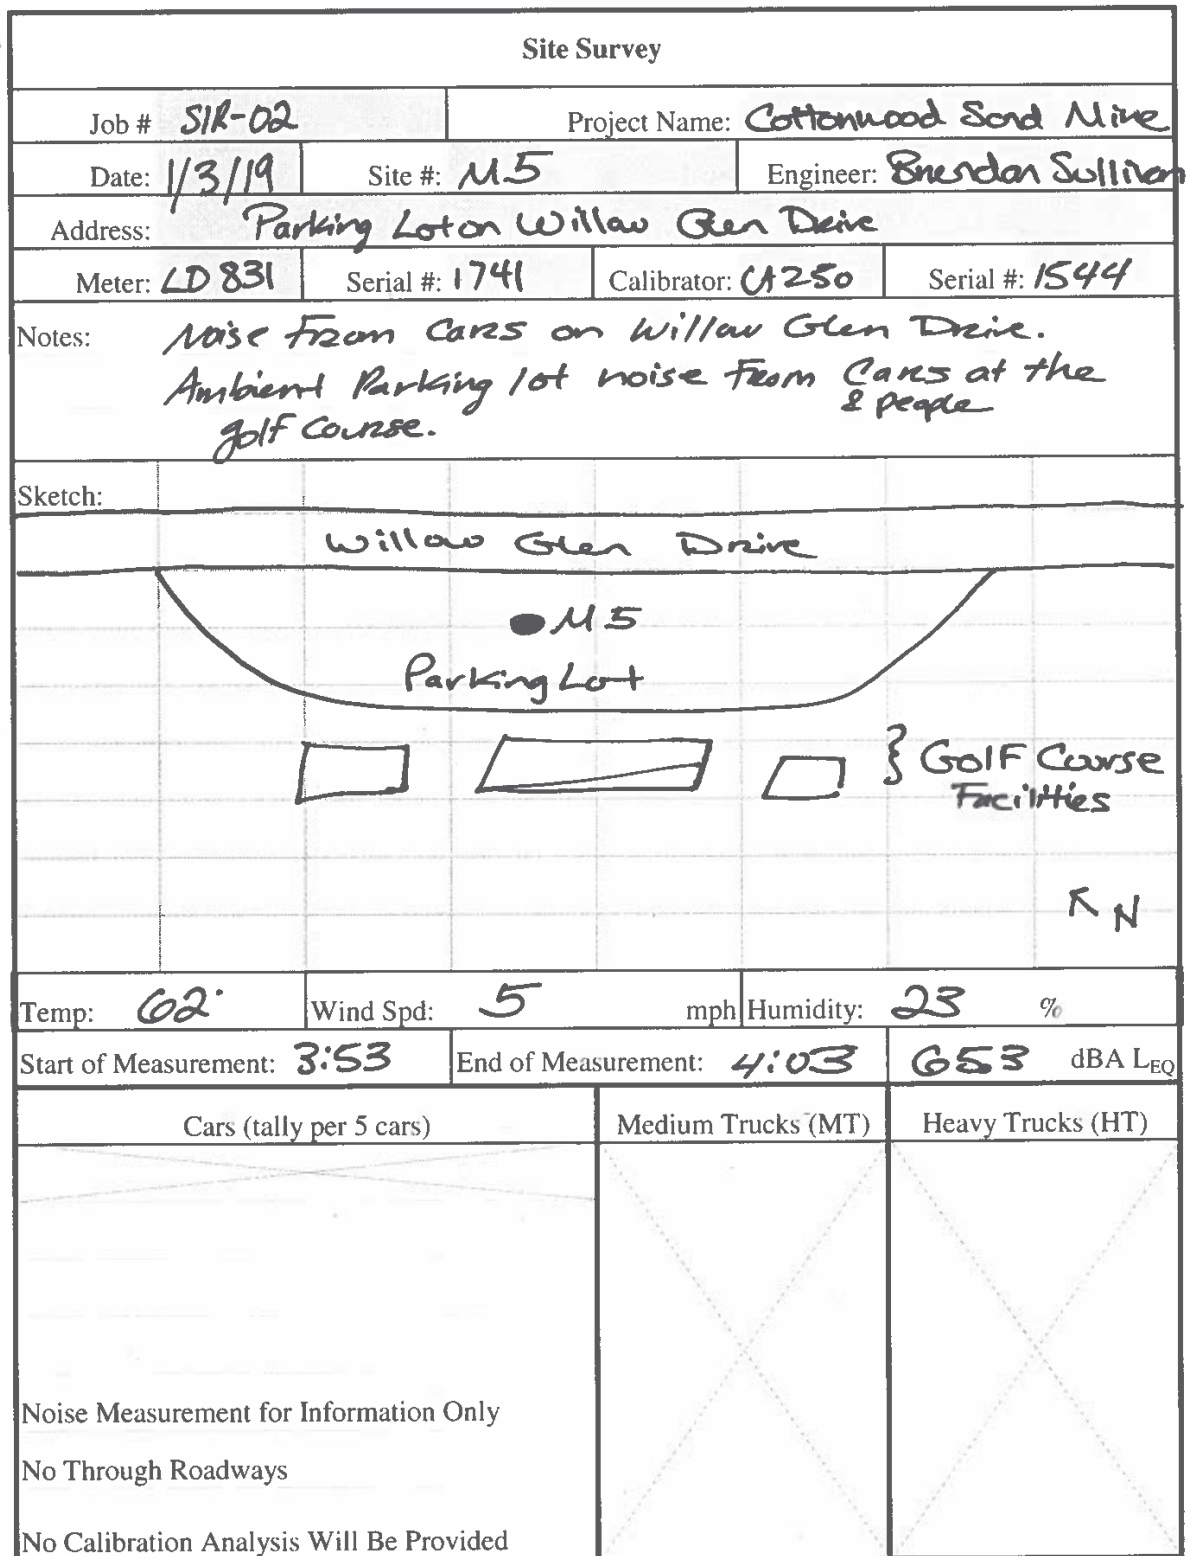 Site Survey
Job # SIR-02 Project Name: Cottonwood Sand Mine
Date: 1/3/19 Site #: M5 Engineer: Brendan Sullivan
Address: Parking Lot on Willow Glen Drive
Meter: LD 831 Serial #: 1741 Calibrator: CA250 Serial #: 1544
Notes: Noise From Cars on Willow Glen Drive.
Ambient Parking lot noise From Cars at the
& people
golf Course.
Sketch:
Willow Glen Drive
M5
Parking Lot
} Golf Course
Facilities
N
Temp: 62° Wind Spd: 5 mph Humidity: 23 %
Start of Measurement: 3:53 End of Measurement: 4:03 65.3 dBA LEQ
Cars (tally per 5 cars) Medium Trucks (MT) Heavy Trucks (HT)
Noise Measurement for Information Only
No Through Roadways
No Calibration Analysis Will Be Provided